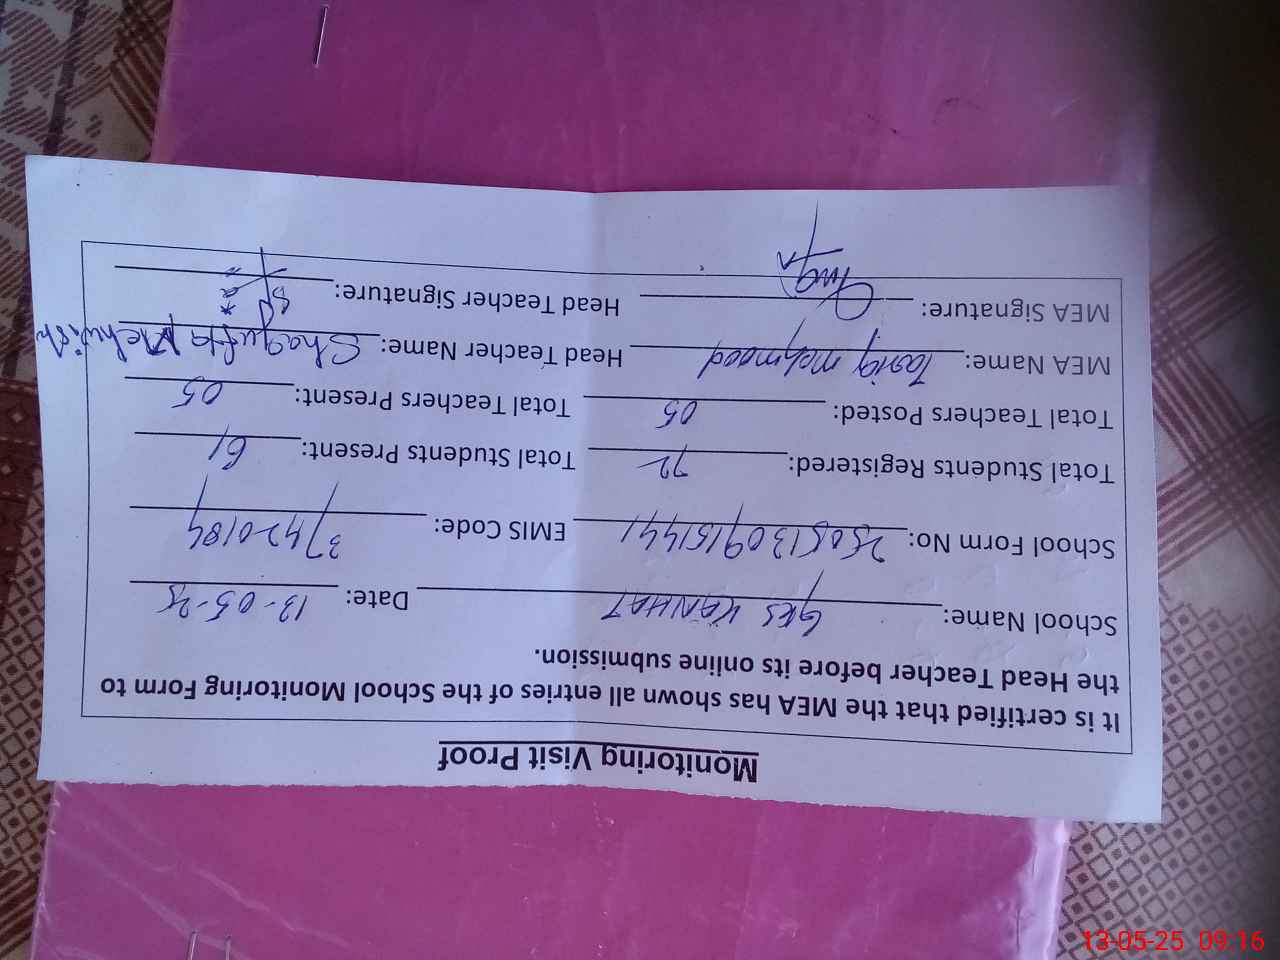 Monitoring Visit Proof
It is certified that the MEA has shown all entries of the School Monitoring Form to
the Head Teacher before its online submission.
School Name: GES KANHAT Date: 13-05-25
School Form No: 25051309151441 EMIS Code: 37420184
Total Students Registered: 72 Total Students Present: 61
Total Teachers Posted: 05 Total Teachers Present: 05
MEA Name: Tariq mahmood Head Teacher Name: Shagufta Mehwish
MEA Signature: Head Teacher Signature:
13-05-25 09:16